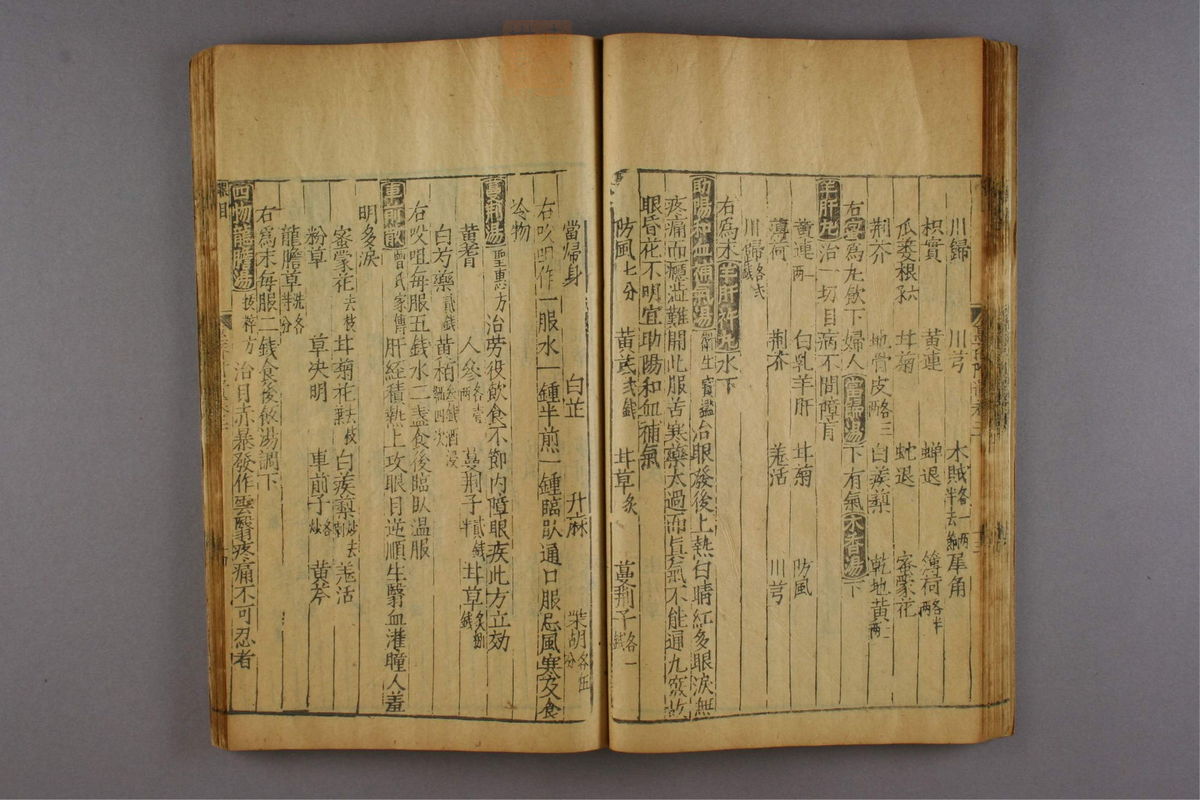 川歸 川芎 木賊各一兩半去節 犀角
枳實 黃連 蟬退 薄荷各半兩
瓜蔞根 甘菊 蛇退 密蒙花
荊芥 地骨皮各三兩 白蒺藜 乾地黃二兩
右蜜為丸飲下婦人當歸湯下有氣木香湯下
羊肝丸治一切目病不問障盲
黃連一兩 白乳羊肝 甘菊 防風
薄荷 荊芥 羌活 川芎
川歸各弐錢
右為末羊肝汁丸水下
助陽和血補氣湯衛生寶鑑治眼發後上熱白睛紅多眼淚無
疼痛而癮澁難開此服苦寒藥太過而真氣不能通九竅故
眼昏花不明宜助陽和血補氣
防風七分 黃芪弐錢 甘草炙 蔓荊子各一錢
當歸身 白芷 升麻 柴胡各伍分
右㕮咀作一服水一鍾半煎一鍾臨臥通口服忌風寒及食
冷物
蔓荊湯聖惠方治勞役飲食不節內障眼疾此方立効
黃耆 人參各壹兩 蔓荊子貳錢半 甘草炙捌錢
白芍藥貳錢 黃栢叁錢酒浸四次
右㕮咀每服五錢水二盞食後臨臥温服
車前散曾氏家傳肝経積熱上攻眼目逆順生翳血灌瞳人羞
明多淚
蜜蒙花去枝 甘菊花去枝 白蒺藜炒去刺 羌活
粉草 草決明 車前子炒各 黃芩
龍膽草洗各半分
右為末每服二錢食後飲湯調下
四物龍膽湯拔粹方治目赤暴發作雲翳疼痛不可忍者